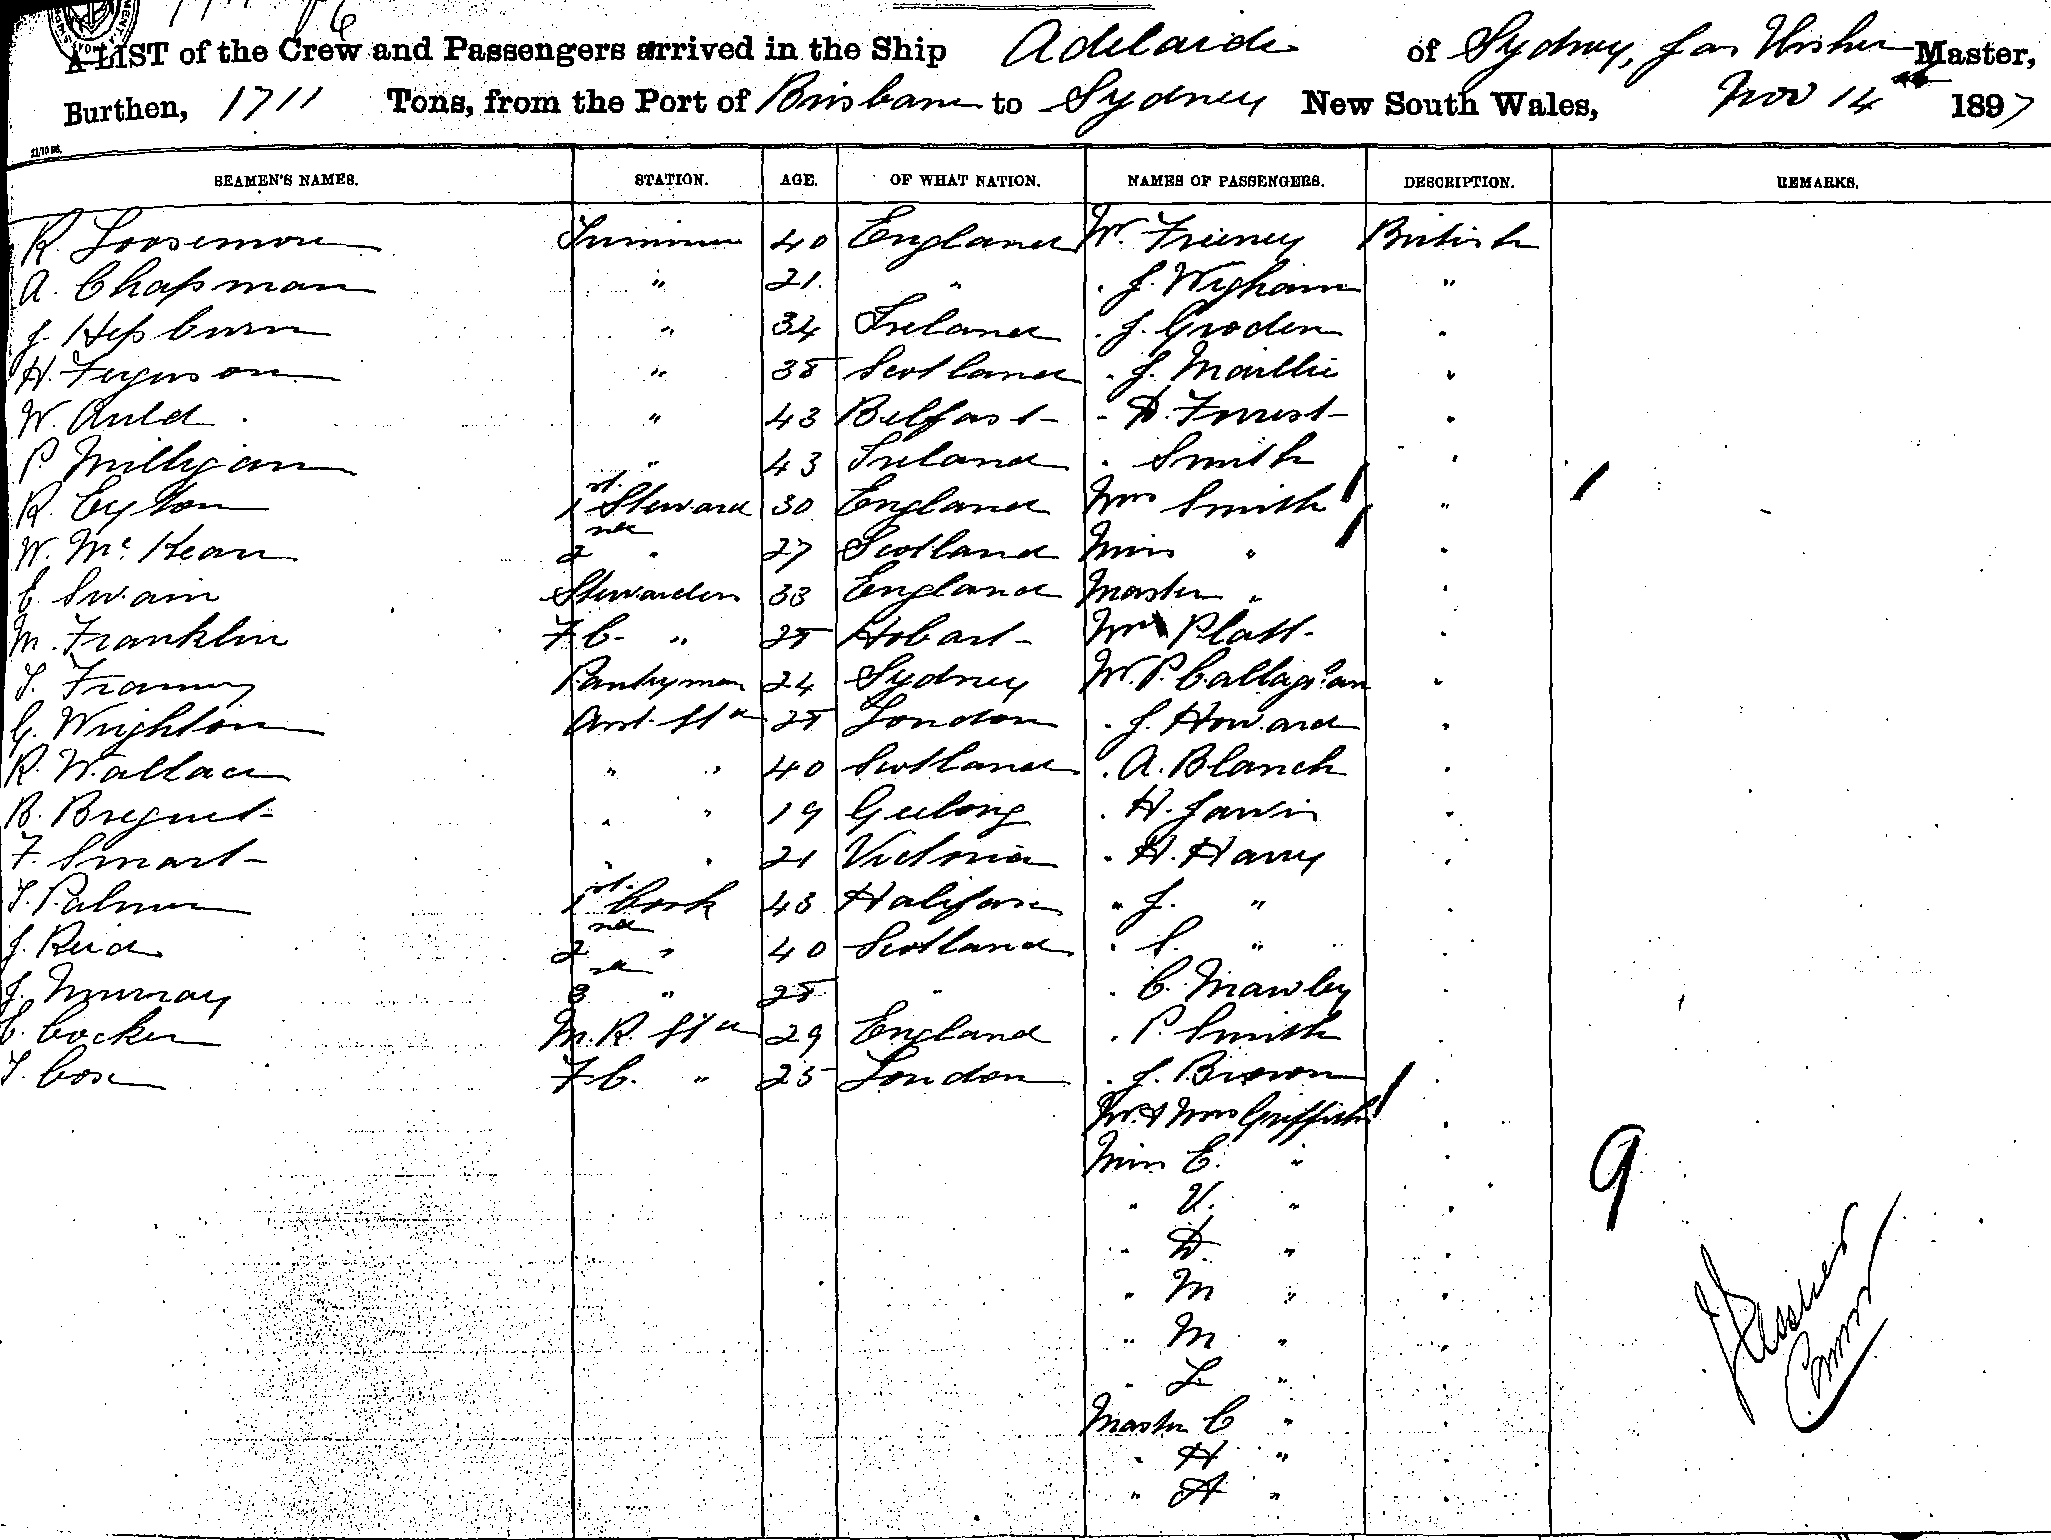 A LIST of the Crew and Passengers arrived in the Ship Adelaide of Sydney, Jas Usher Master,
Burthen, 1711 Tons, from the Port of Brisbane to Sydney New South Wales, Nov 14th 1897
SEAMEN'S NAMES. STATION. AGE. OF WHAT NATION. NAMES OF PASSENGERS. DESCRIPTION. REMARKS.
R. Loosemore Trimmer 40 England Mr. Freeney British
A. Chapman " 21. " . J. Wigham "
J. Hepburn " 34 Ireland . J. Groden "
H. Ferguson " 38 Scotland . J. Maillie "
W. Auld " 43 Belfast . D. Forrest "
P. Milligan " 43 Ireland . Smith "
R. Eyton 1st Steward 30 England Mrs Smith "
W. McKean 2nd " 27 Scotland Miss " "
E. Swain Stewardess 33 England Master " "
M. Franklin F.C. " 28 Hobart Mrs Platt "
T. Pantryman 24 Sydney Mr. P. Callaghan "
G. Wrighton Asst. Std 28 London . J. Howard "
R. Wallace " " 40 Scotland . A. Blanch "
B. Breguet " " 19 Geelong . H. Jarvis "
F. Smart " " 21 Victoria . H. Harry "
T. Palmer 1st Cook 43 Halifax " J. " "
J. Reid 2nd " 40 Scotland . S. " "
J. Murray 3rd " 28 " . C. Mawley "
C. Cocker M.R. Std 29 England . P. Smith "
T. Cox F.C. " 25 London . J. Brown "
Mr & Mrs Griffiths "
Miss E. " "
" V. " "
" D. " "
" M " "
" M " "
" L " "
Master C " "
" H " "
" A " "
9